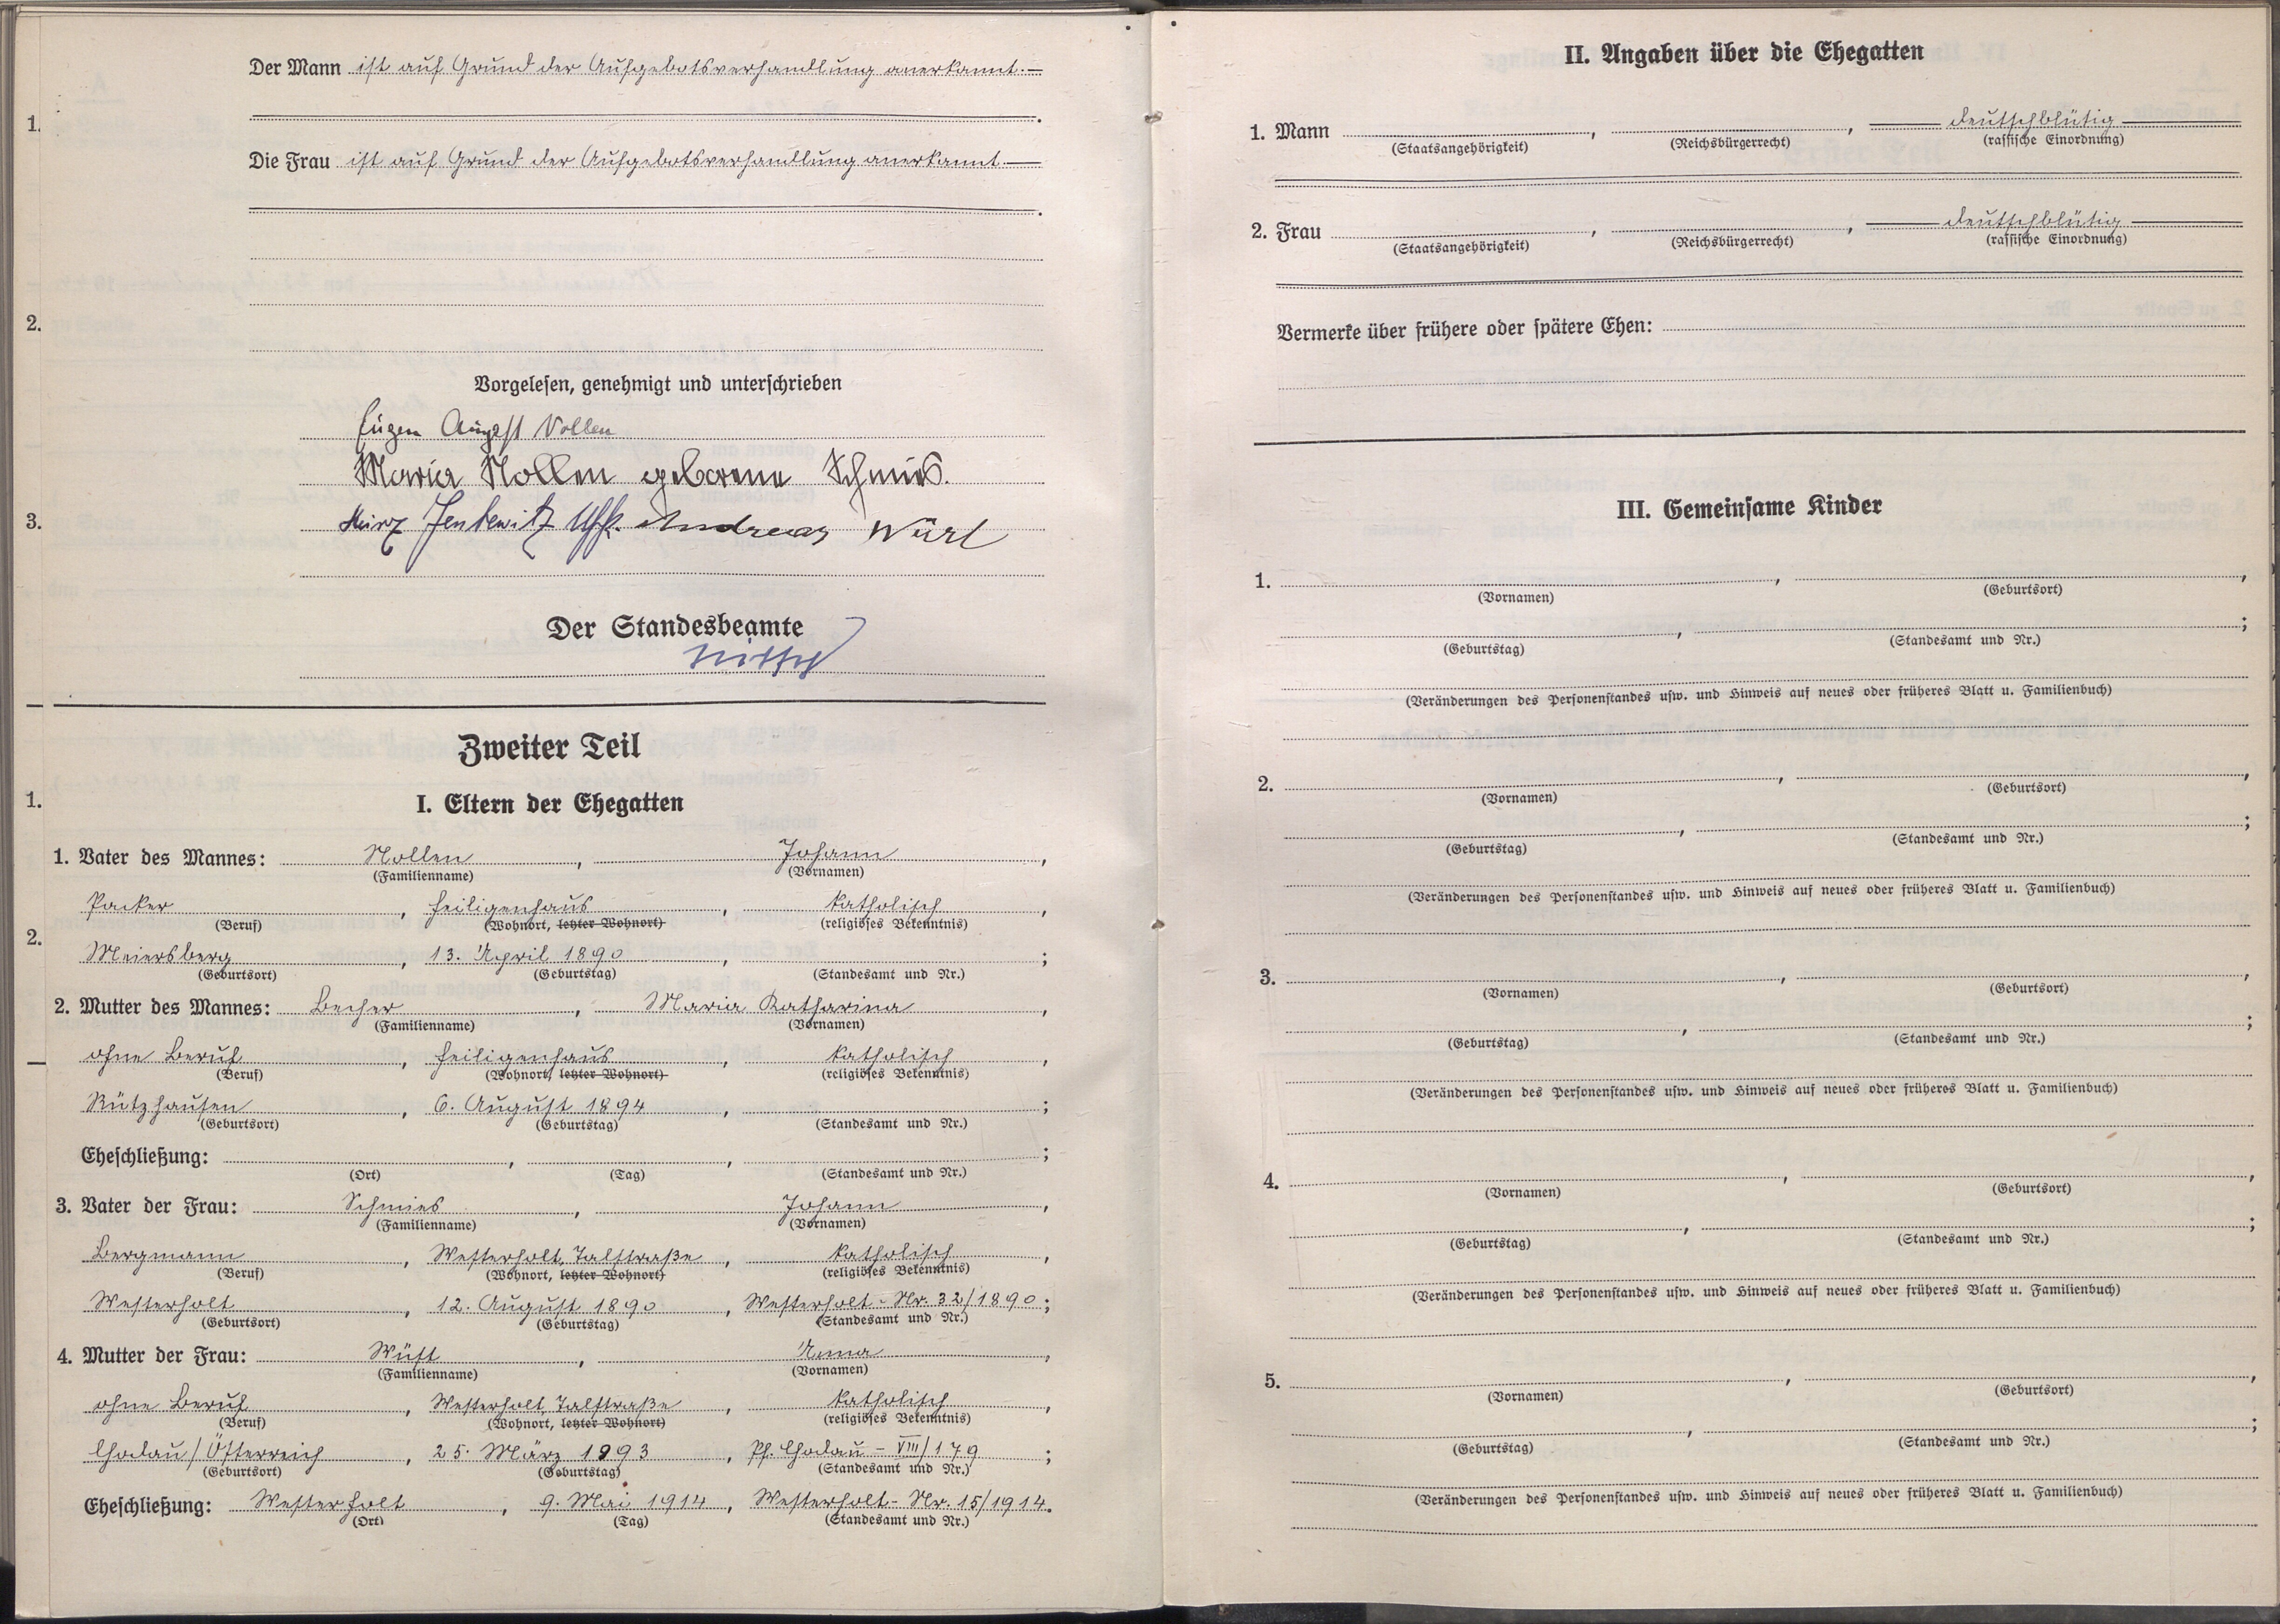 Der Mann ist auf Grund der Aufgebotsverhandlung anerkannt.—
1.
Die Frau ist auf Grund der Aufgebotsverhandlung anerkannt —
2.
Vorgelesen, genehmigt und unterschrieben
Eugen August Nollen
Maria Nollen geborene Schmies.
3.
Andreas Würl
Der Standesbeamte
Zweiter Teil
1.
I. Eltern der Ehegatten
1. Vater des Mannes: Nollen, Johann,
(Familienname) (Vornamen)
Packer, Heiligenhaus, katholisch,
(Beruf) (Wohnort, letzter Wohnort) (religiöses Bekenntnis)
2.
Meiersberg, 13. April 1890, ;
(Geburtsort) (Geburtstag) (Standesamt und Nr.)
2. Mutter des Mannes: Becher, Maria Katharina,
(Familienname) (Vornamen)
ohne Beruf, Heiligenhaus, katholisch,
(Beruf) (Wohnort, letzter Wohnort) (religiöses Bekenntnis)
Rützhausen, 6. August 1894, ;
(Geburtsort) (Geburtstag) (Standesamt und Nr.)
Eheschließung: , , ;
(Ort) (Tag) (Standesamt und Nr.)
3. Vater der Frau: Schmies, Johann,
(Familienname) (Vornamen)
Bergmann, Westerholt, Talstraße, katholisch,
(Beruf) (Wohnort, letzter Wohnort) (religiöses Bekenntnis)
Westerholt, 12. August 1890, Westerholt - Nr. 32/1890;
(Geburtsort) (Geburtstag) (Standesamt und Nr.)
4. Mutter der Frau: Wüst, Anna,
(Familienname) (Vornamen)
ohne Beruf, Westerholt, Talstraße, katholisch,
(Beruf) (Wohnort, letzter Wohnort) (religiöses Bekenntnis)
Chodau/Österreich, 25. März 1893, Pf. Chodau - VIII/179;
(Geburtsort) (Geburtstag) (Standesamt und Nr.)
Eheschließung: Westerholt, 9. Mai 1914, Westerholt - Nr. 15/1914.
(Ort) (Tag) (Standesamt und Nr.)
II. Angaben über die Ehegatten
1. Mann , , deutschblütig
(Staatsangehörigkeit) (Reichsbürgerrecht) (rassische Einordnung)
2. Frau , , deutschblütig
(Staatsangehörigkeit) (Reichsbürgerrecht) (rassische Einordnung)
Vermerke über frühere oder spätere Ehen:
III. Gemeinsame Kinder
1. , ,
(Vornamen) (Geburtsort)
, ;
(Geburtstag) (Standesamt und Nr.)
(Veränderungen des Personenstandes usw. und Hinweis auf neues oder früheres Blatt u. Familienbuch)
2. , ,
(Vornamen) (Geburtsort)
, ;
(Geburtstag) (Standesamt und Nr.)
(Veränderungen des Personenstandes usw. und Hinweis auf neues oder früheres Blatt u. Familienbuch)
3. , ,
(Vornamen) (Geburtsort)
, ;
(Geburtstag) (Standesamt und Nr.)
(Veränderungen des Personenstandes usw. und Hinweis auf neues oder früheres Blatt u. Familienbuch)
4. , ,
(Vornamen) (Geburtsort)
, ;
(Geburtstag) (Standesamt und Nr.)
(Veränderungen des Personenstandes usw. und Hinweis auf neues oder früheres Blatt u. Familienbuch)
5. , ,
(Vornamen) (Geburtsort)
, ;
(Geburtstag) (Standesamt und Nr.)
(Veränderungen des Personenstandes usw. und Hinweis auf neues oder früheres Blatt u. Familienbuch)